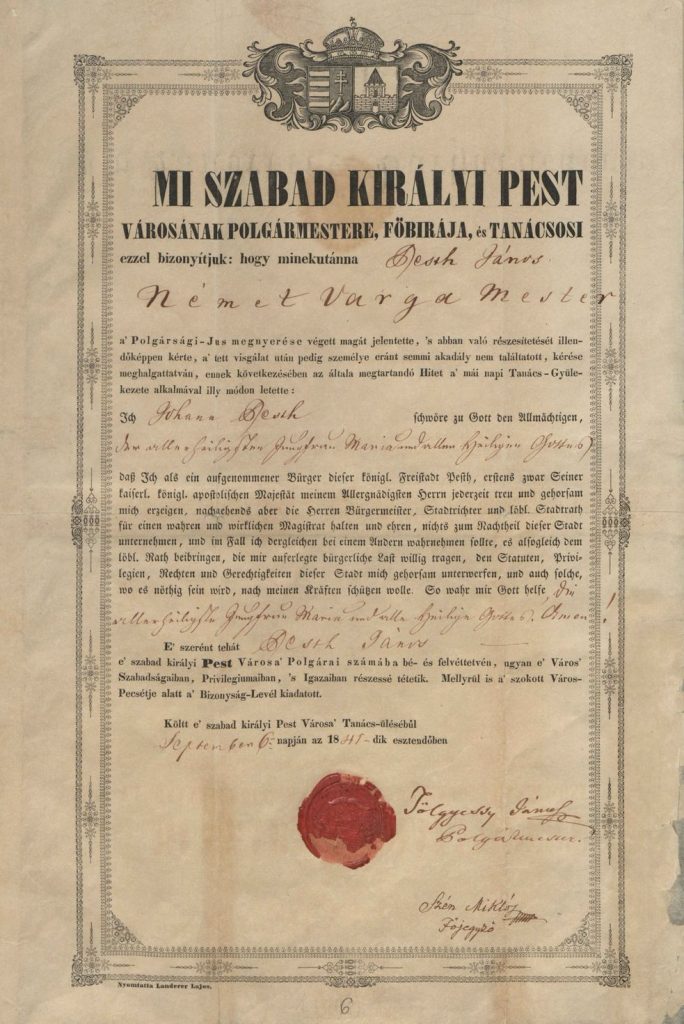 MI SZABAD KIRÁLYI PEST
VÁROSÁNAK POLGÁRMESTERE, FŐBIRÁJA, és TANÁCSOSI
ezzel bizonyítjuk: hogy minekutánna Besth János
Német Varga Mester
a' Polgársági-Jus megnyerése végett magát jelentette, 's abban való részesítetését illen-
dőképpen kérte, a' tett visgálat után pedig személye eránt semmi akadály nem találtatott, kérése
meghalgattatván, ennek következésében az általa megtartandó Hitet a' mái napi Tanács-Gyüle-
kezete alkalmával illy módon letette:
Ich Johann Besth schwöre zu Gott den Allmächtigen,
der allerheiligsten Jungfrau Maria und allen Heiligen Gottes,
daß Ich als ein aufgenommener Bürger dieser königl. Freistadt Pesth, erstens zwar Seiner
kaiserl. königl. apostolischen Majestät meinem Allergnädigsten Herrn jederzeit treu und gehorsam
mich erzeigen, nachgehends aber die Herren Bürgermeister, Stadtrichter und löbl. Stadtrath
für einen wahren und wirklichen Magistrat halten und ehren, nichts zum Nachtheil dieser Stadt
unternehmen, und im Fall ich dergleichen bei einem Andern wahrnehmen sollte, es alsogleich dem
löbl. Rath beibringen, die mir auferlegte bürgerliche Last willig tragen, den Statuten, Privi-
legien, Rechten und Gerechtigkeiten dieser Stadt mich gehorsam unterwerfen, und auch solche,
wo es nöthig sein wird, nach meinen Kräften schützen wolle. So wahr mir Gott helfe, die
allerheiligste Jungfrau Maria und alle Heilige Gottes. Amen!
E' szerént tehát Besth János
e' szabad királyi Pest Városa' Polgárai számába bé- és felvéttetvén, ugyan e' Város'
Szabadságaiban, Privilegiumaiban, 's Igazaiban részessé tétetik. Mellyrül is a' szokott Város-
Pecsétje alatt a' Bizonyság-Levél kiadatott.
Költt e' szabad királyi Pest Városa' Tanács-üléséből
September 6. napján az 18 -dik esztendőben
Tölgyessy János
Polgármester.
Szén Miklós
Főjegyző
Nyomtatta Landerer Lajos.
6